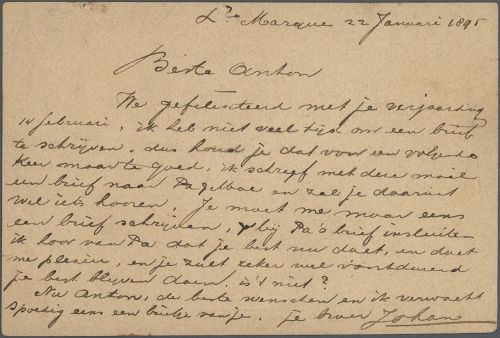 Lt. Marque 22 Januari 1895
Beste Anton
We gefeliciteerd met je verjaardag
14 februari, ik heb niet veel tijd om een brief
te schrijven, dus houd je dat voor een volgende
keer maar te goed, ik schreef met deze mail
een brief naar en zal je daaruit
wel iets hooren. Je moet me maar eens
een brief schrijven, bij Pa's brief insluiten
ik hoor van Pa dat je best nu doet, en doet
me plezier, en je zult zeker wel voortdurend
je best blijven doen. is 't niet?
Nu Anton, de beste wenschen en ik verwacht
spoedig eens een briefje van je. je broer Johan